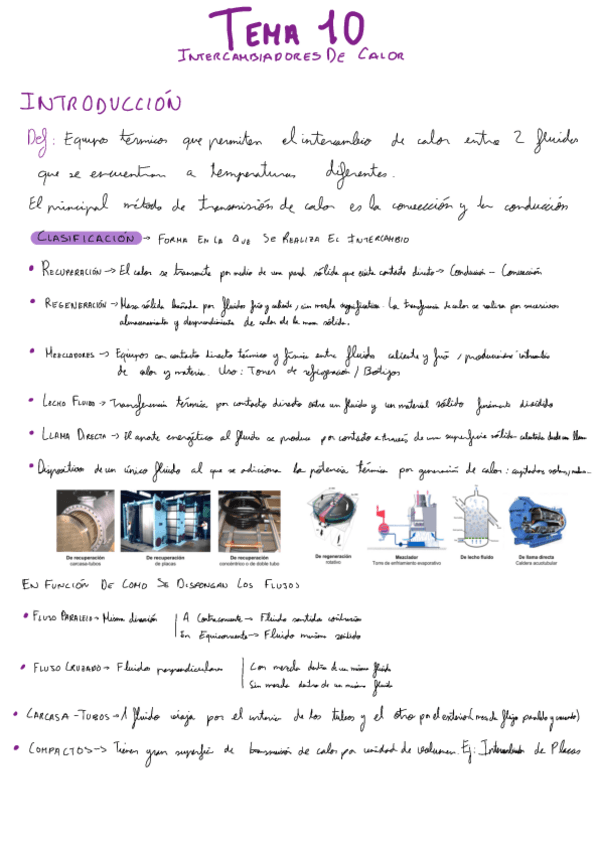 TEMA 10
INTERCAMBIADORES DE CALOR
INTRODUCCIÓN
Def: Equipos térmicos que permiten el intercambio de calor entre 2 fluidos
que se encuentran a temperaturas diferentes.
El principal método de transmisión de calor es la convección y la conducción
CLASIFICACIÓN → FORMA EN LA QUE SE REALIZA EL INTERCAMBIO
• RECUPERACIÓN → El calor se transmite por medio de una pared sólida que existe contacto directo → Conducción - Convección
• REGENERACIÓN → Masa sólida bañada por fluidos frío y caliente, sin mezcla significativa. La transferencia de calor se realiza por sucesivos
almacenamiento y desprendimiento de calor de la masa sólida.
• MEZCLADORES → Equipos con contacto directo térmico y físico entre fluido caliente y frío, produciéndose intercambio
de calor y materia. Uso: Torres de refrigeración / Botijos
• LECHO FLUIDO → Transferencia térmica por contacto directo entre un fluido y un material sólido finamente dividido
• LLAMA DIRECTA → El aporte energético al fluido se produce por contacto a través de una superficie sólida calentada desde una llama
• Dispositivos de un único fluido al que se adiciona la potencia térmica por generación de calor: captadores solares,
De recuperación De recuperación De recuperación De regeneración Mezclador De lecho fluido De llama directa
carcasa-tubos de placas concéntrico o de doble tubo rotativo Torre de enfriamiento evaporativo Caldera acuotubular
EN FUNCIÓN DE COMO SE DISPONGAN LOS FLUJOS
• FLUJO PARALELO → Misma dirección | A Contracorriente → Fluido sentidos contrarios
En Equicorriente → Fluido mismo sentido
• FLUJO CRUZADO → Fluidos perpendiculares | Con mezcla dentro de un mismo fluido
Sin mezcla dentro de un mismo fluido
• CARCASA - TUBOS → 1 fluido viaja por el interior de los tubos y el otro por el exterior (mezcla flujo paralelo y cruzado)
• COMPACTOS → Tienen gran superficie de transmisión de calor por unidad de volumen. Ej: Intercambiador de Placas